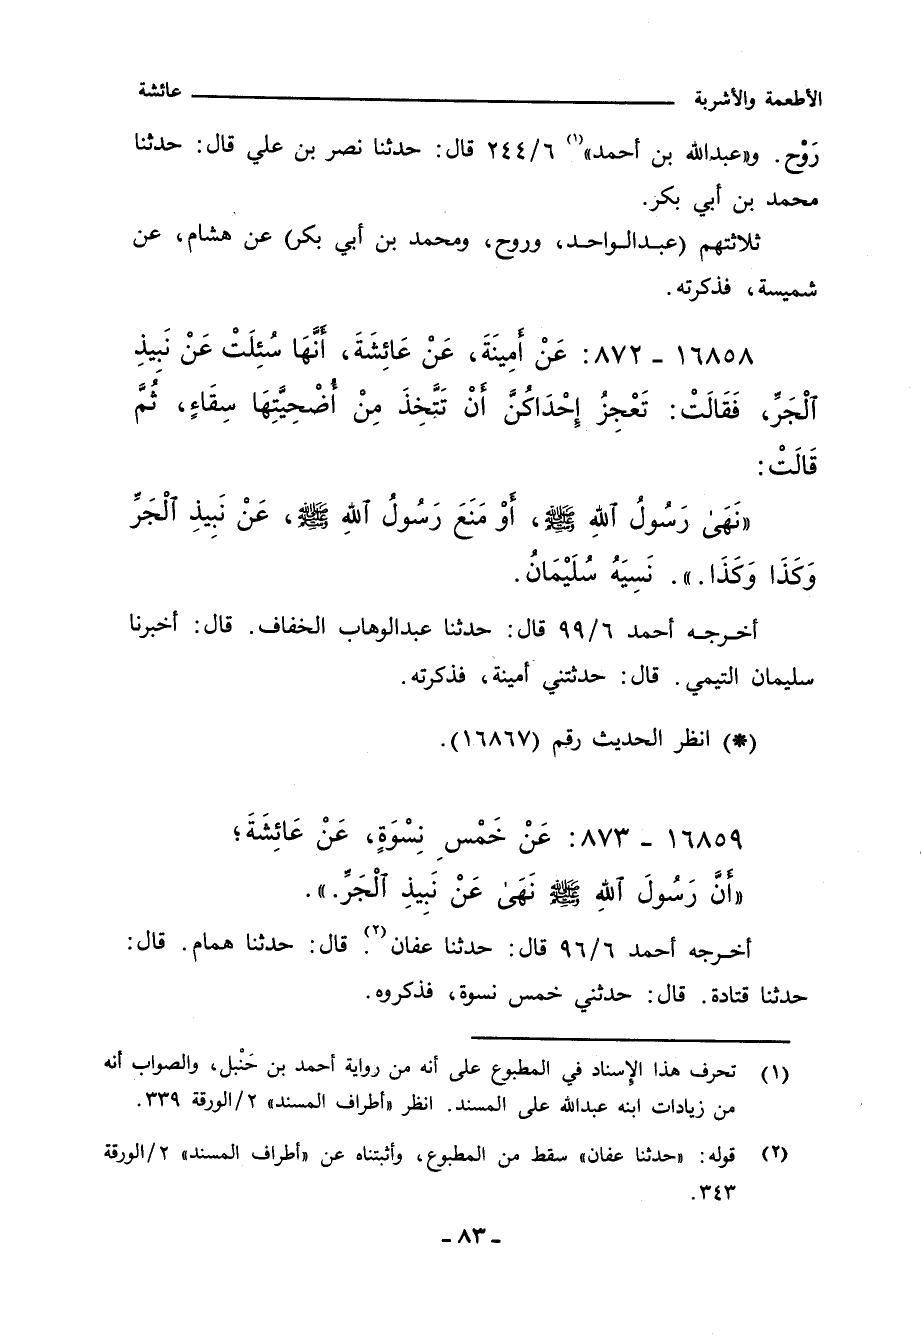 الأطعمة والأشربة ــــــــــ عائشة
رَوْح. و«عبدالله بن أحمد»(١) ٢٤٤/٦ قال: حدثنا نصر بن علي قال: حدثنا
محمد بن أبي بكر.
ثلاثتهم (عبـدالـواحـد، وروح، ومحمد بن أبي بكر) عن هشام، عن
شميسة، فذكرته.
١٦٨٥٨ ـ ٨٧٢: عَنْ أَمِينَةَ، عَنْ عَائِشَةَ، أَنَّهَا سُئِلَتْ عَنْ نَبِيذِ
ٱلْجَرِّ، فَقَالَتْ: تَعْجِزُ إِحْدَاكُنَّ أَنْ تَتَّخِذَ مِنْ أُضْحِيَّتِهَا سِقَاءً، ثُمَّ
قَالَتْ:
«نَهَىٰ رَسُولُ ٱللهِ ﷺ، أَوْ مَنَعَ رَسُولُ ٱللهِ ﷺ، عَنْ نَبِيذِ ٱلْجَرِّ
وَكَذَا وَكَذَا.». نَسِيَهُ سُلَيْمَانُ.
أخـرجـه أحمد ٩٩/٦ قال: حدثنا عبدالوهاب الخفاف. قال: أخبرنا
سليمان التيمي. قال: حدثتني أمينة، فذكرته.
(*) انظر الحديث رقم (١٦٨٦٧).
١٦٨٥٩ ـ ٨٧٣: عَنْ خَمْسِ نِسْوَةٍ، عَنْ عَائِشَةَ؛
«أَنَّ رَسُولَ ٱللهِ ﷺ نَهَىٰ عَنْ نَبِيذِ ٱلْجَرِّ.».
أخـرجه أحمد ٩٦/٦ قال: حدثنا عفان(٢). قال: حدثنا همام. قال:
حدثنا قتادة. قال: حدثني خمس نسوة، فذكروه.
(١) تحرف هذا الإسناد في المطبوع على أنه من رواية أحمد بن حَنْبل، والصواب أنه
من زيادات ابنه عبدالله على المسند. انظر «أطراف المسند» ٢/الورقة ٣٣٩.
(٢) قوله: «حدثنا عفان» سقط من المطبوع، وأثبتناه عن «أطراف المسند» ٢/الورقة
٣٤٣.
ـ ٨٣ ـ